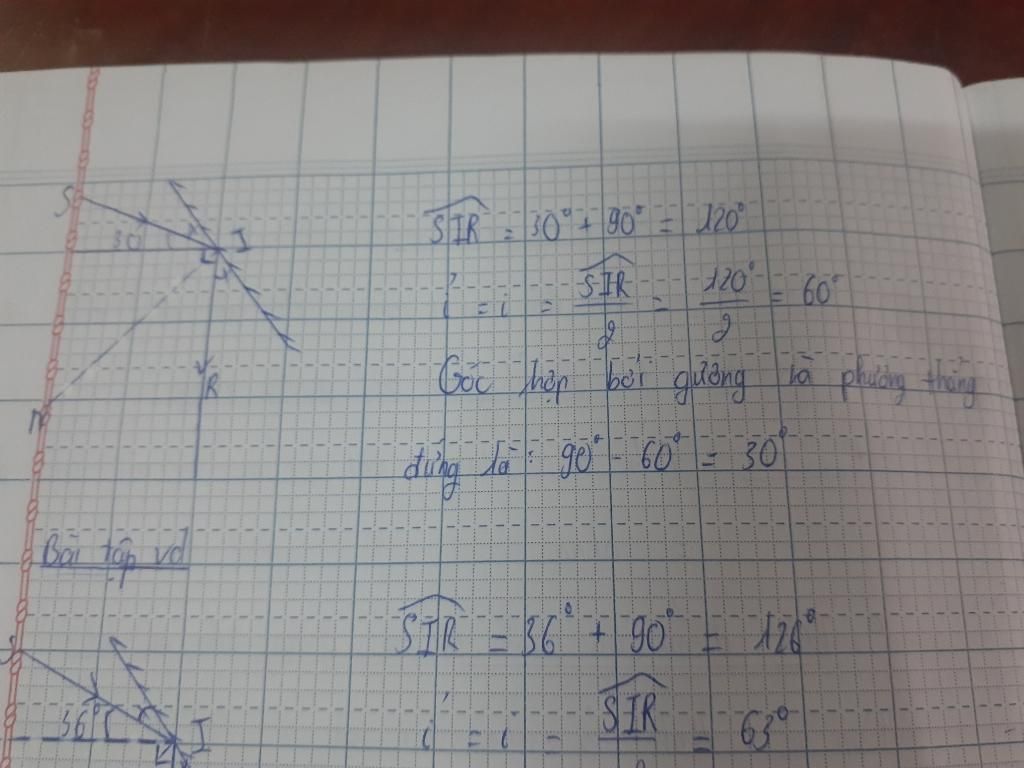 S
30°
I
R
N
SIR = 30° + 90° = 120°
i' = i = SIR/2 = 120°/2 = 60°
Góc hợp bởi gương là phương thẳng
đứng là: 90° - 60° = 30°
Bài tập vd
S
36°
I
SIR = 36° + 90° = 126°
i' = i = SIR = 63°